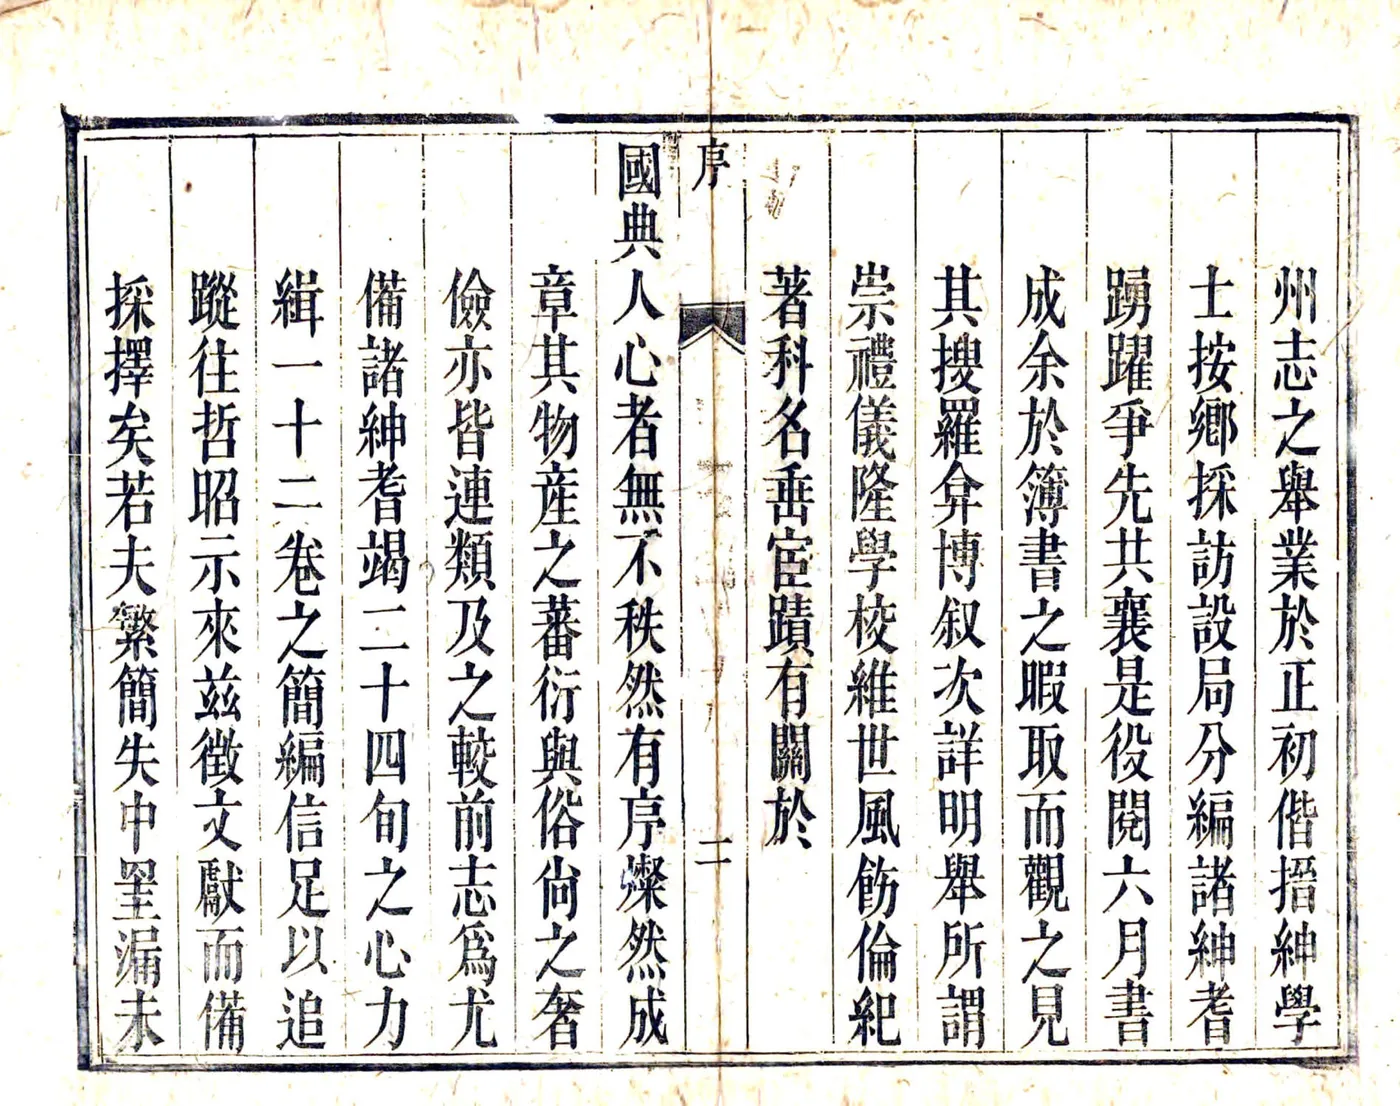 州志之舉業於正初偕搢紳學
士按鄉採訪設局分編諸紳耆
踴躍爭先共襄是役閱六月書
成余於簿書之暇取而觀之見
其搜羅弇博叙次詳明舉所謂
崇禮儀隆學校維世風飭倫紀
著科名垂宦蹟有關於
序
二
國典人心者無不秩然有序燦然成
章其物産之蕃衍與俗尙之奢
儉亦皆連類及之較前志爲尤
備諸紳耆竭二十四旬之心力
緝一十二卷之簡編信足以追
蹤往哲昭示來茲徵文獻而備
採擇矣若夫繁簡失中罣漏未